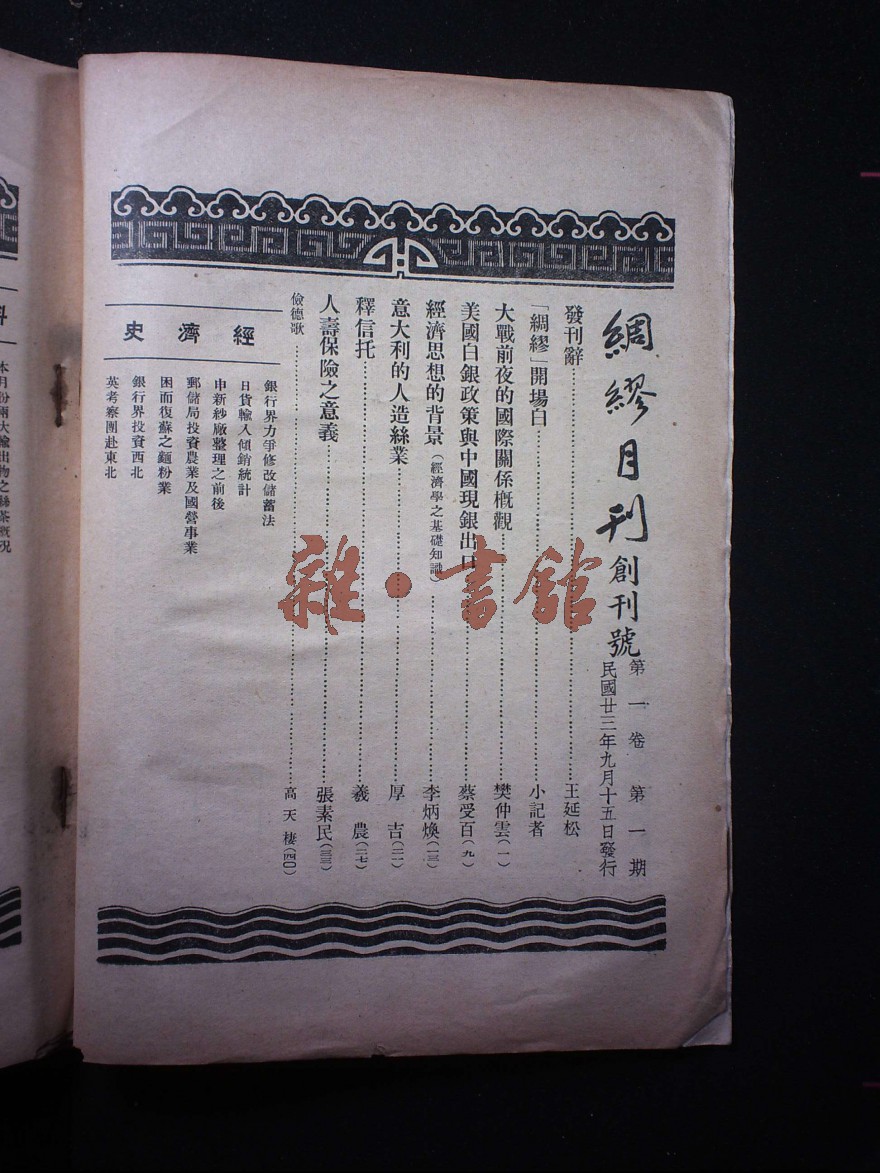 綢繆月刊 創刊號
第一卷 第一期
民國廿三年九月十五日發行
發刊辭……王延松
「綢繆」開場白……小記者
大戰前夜的國際關係槪觀……樊仲雲(一)
美國白銀政策與中國現銀出口……蔡受百(九)
經濟思想的背景(經濟學之基礎知識)……李炳煥(一三)
意大利的人造絲業……厚吉(二一)
釋信托……羲農(二七)
人壽保險之意義……張素民(三三)
儉德歌……高天棲(四〇)
經濟史
銀行界力爭修改儲蓄法
日貨輸入傾銷統計
申新紗廠整理之前後
郵儲局投資農業及國營事業
困而復蘇之麵粉業
銀行界投資西北
英考察團赴東北
料
本月份兩大輸出物之絲茶槪况
雜·書館